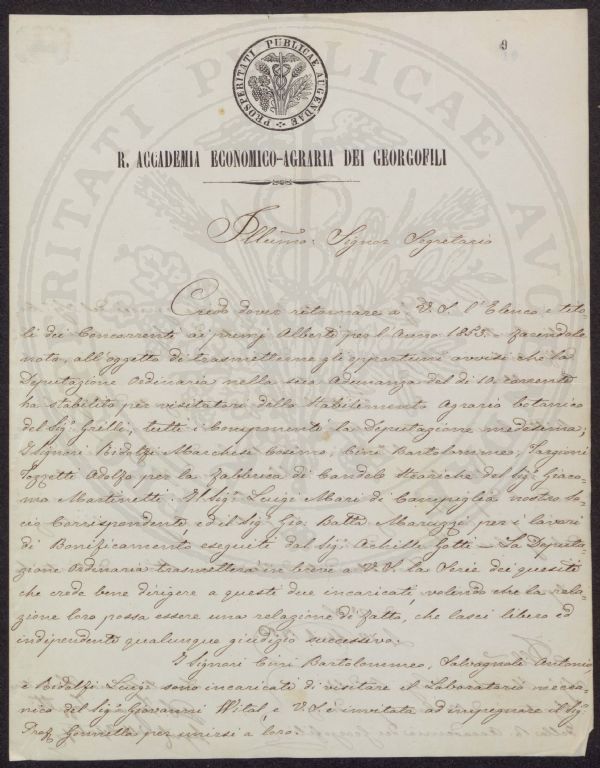 9
PROSPERITATI PUBLICAE AUGENDAE
R. ACCADEMIA ECONOMICO-AGRARIA DEI GEORGOFILI
Illmo: Signor Segretario
Credo dover ritornare a V. S. l'Elenco e tito-
li dei Concorrenti ai premj Alberti per l'Anno 1853. facendole
nota, all'oggetto di trasmetterne gli opportuni avvisi che la
Deputazione Ordinaria nella sua Adunanza del dì 10. corrente
ha stabilito per visitatori dello Stabilimento Agrario botanico
del Sigr. Grilli; tutti i Componenti la Deputazione medesima;
I Signori Ridolfi Marchese Cosimo; Cini Bartolommeo; Targioni
Tozzetti Adolfo per la fabbrica di Candele Steariche del Sigr. Giaco-
mo Martinetti. Il Sigr. Luigi Mari di Campiglia nostro So-
cio Corrispondente ed il Sigr. Gio. Batta. Maruzzi per i lavori
di Bonificamento eseguiti dal Sigr. Achille Gotti — La Deputa-
zione Ordinaria trasmetterà in breve a V. S. la Serie dei quesiti
che crede bene dirigere a questi due incaricati, volendo che la rela-
zione loro possa essere una relazione di fatto, che lasci libero ed
indipendente qualunque giudizio successivo.
I Signori Cini Bartolommeo, Salvagnoli Antonio,
e Ridolfi Luigi sono incaricati di visitare il Laboratorio mecca-
nico del Sigr. Giovanni Wital, e V. S. è invitata ad impegnare il Sigr.
Prof. Gonnella per unirsi a loro.